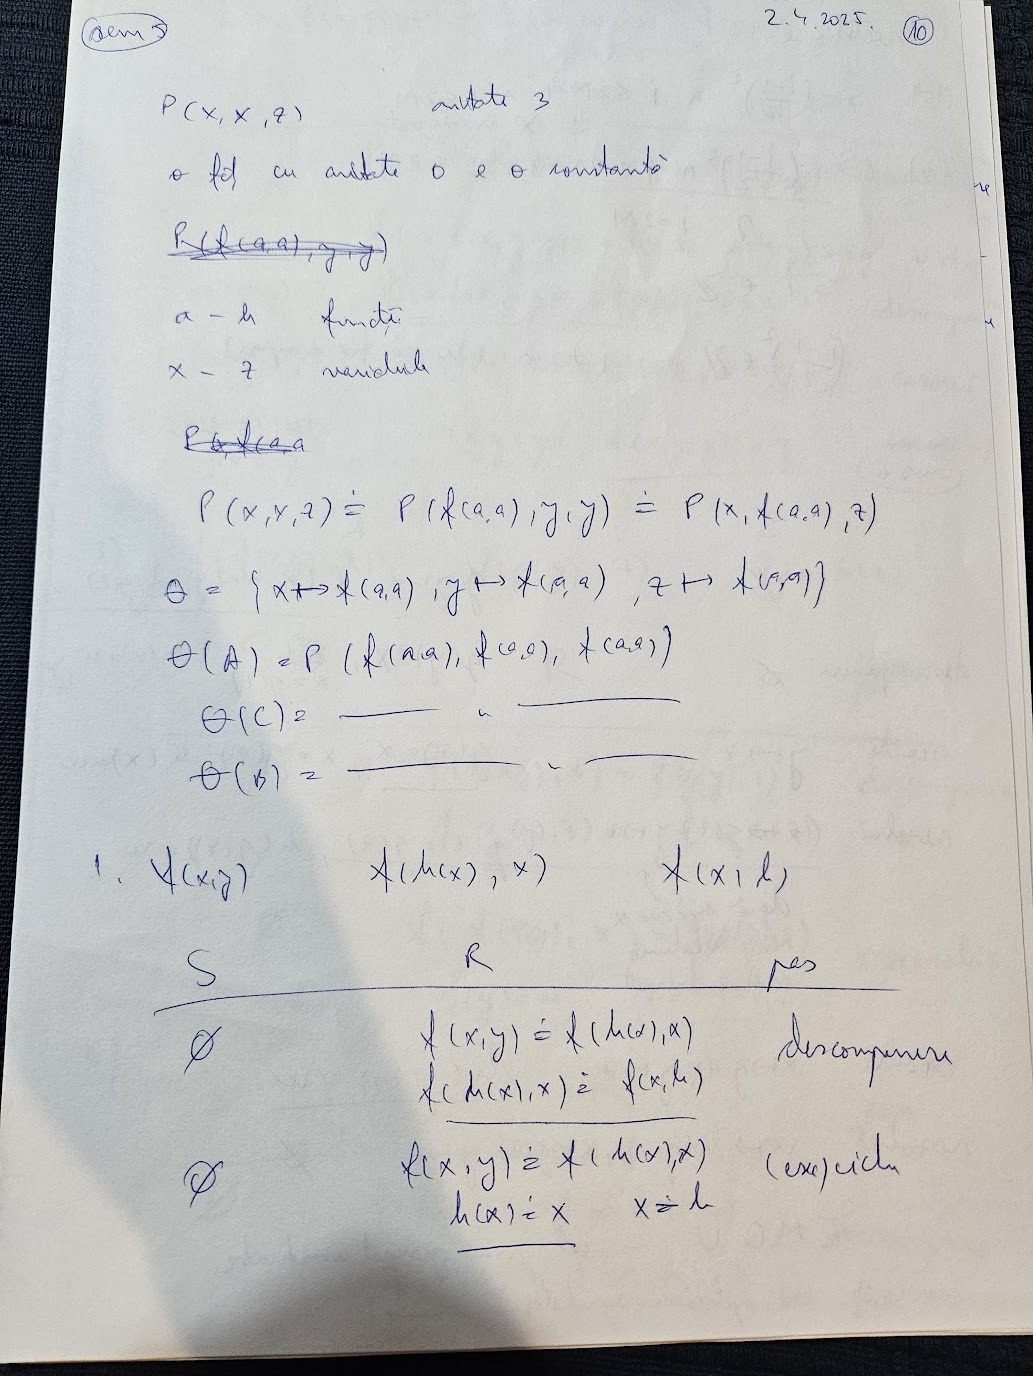 sem 5 2.4.2025. 10
P(x, x, z) aritate 3
o fct cu aritate 0 e o constantă
P(f(a,a), y, y)
a – h funcții
x – z variabile
P(x, f(a,a
P(x,x,z) ≐ P(f(a,a), y, y) ≐ P(x, f(a,a), z)
θ = {x ↦ f(a,a), y ↦ f(a,a), z ↦ f(a,a)}
θ(A) = P(f(a,a), f(a,a), f(a,a))
θ(C) = —— " ——
θ(B) = —— " ——
1. f(x,y) f(h(x), x) f(x, b)
S R pas
∅ f(x,y) ≐ f(h(x),x) descompunere
f(h(x),x) ≐ f(x,b)
∅ f(x,y) ≐ f(h(x),x)
h(x) ≐ x x ≐ b